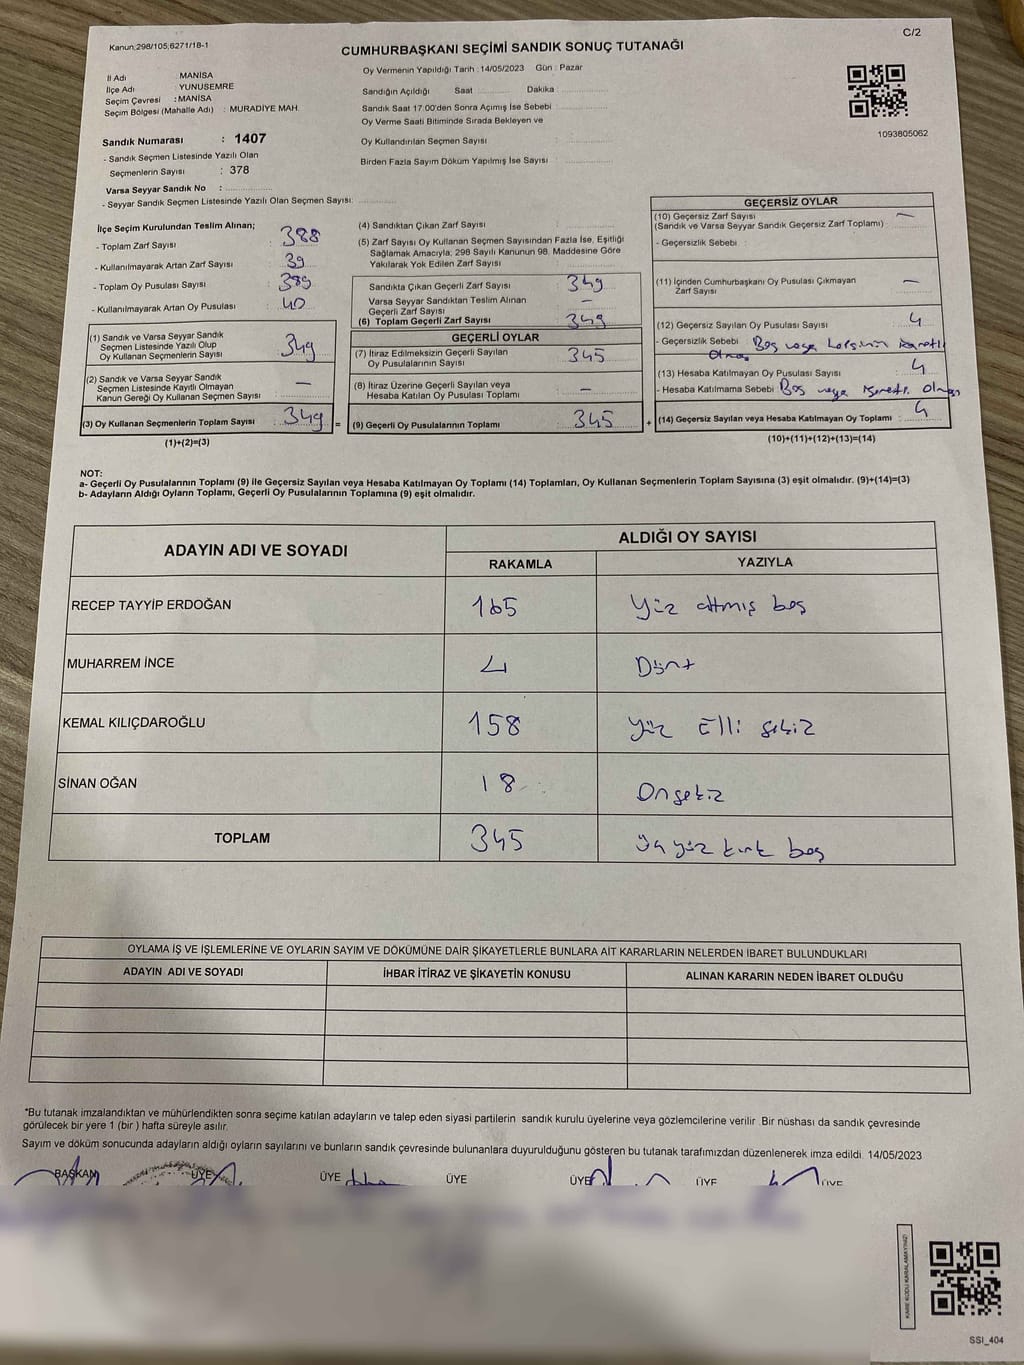 Kanun:298/105;6271/18-1
C/2
CUMHURBAŞKANI SEÇİMİ SANDIK SONUÇ TUTANAĞI
İl Adı : MANİSA
İlçe Adı : YUNUSEMRE
Seçim Çevresi : MANİSA
Seçim Bölgesi (Mahalle Adı) : MURADİYE MAH.
Sandık Numarası : 1407
- Sandık Seçmen Listesinde Yazılı Olan
Seçmenlerin Sayısı : 378
Varsa Seyyar Sandık No :
- Seyyar Sandık Seçmen Listesinde Yazılı Olan Seçmen Sayısı:
Oy Vermenin Yapıldığı Tarih : 14/05/2023 Gün : Pazar
Sandığın Açıldığı Saat Dakika :
Sandık Saat 17:00'den Sonra Açımış İse Sebebi :
Oy Verme Saati Bitiminde Sırada Bekleyen ve
Oy Kullandırılan Seçmen Sayısı :
Birden Fazla Sayım Döküm Yapılmış İse Sayısı :
1093805062
İlçe Seçim Kurulundan Teslim Alınan;
- Toplam Zarf Sayısı : 388
- Kullanılmayarak Artan Zarf Sayısı : 39
- Toplam Oy Pusulası Sayısı : 389
- Kullanılmayarak Artan Oy Pusulası : 40
(1) Sandık ve Varsa Seyyar Sandık
Seçmen Listesinde Yazılı Olup
Oy Kullanan Seçmenlerin Sayısı : 349
(2) Sandık ve Varsa Seyyar Sandık
Seçmen Listesinde Kayıtlı Olmayan
Kanun Gereği Oy Kullanan Seçmen Sayısı : —
(3) Oy Kullanan Seçmenlerin Toplam Sayısı : 349
(1)+(2)=(3)
=
(4) Sandıktan Çıkan Zarf Sayısı :
(5) Zarf Sayısı Oy Kullanan Seçmen Sayısından Fazla İse, Eşitliği
Sağlamak Amacıyla; 298 Sayılı Kanunun 98. Maddesine Göre
Yakılarak Yok Edilen Zarf Sayısı :
Sandıkta Çıkan Geçerli Zarf Sayısı : 349
Varsa Seyyar Sandıktan Teslim Alınan
Geçerli Zarf Sayısı : —
(6) Toplam Geçerli Zarf Sayısı : 349
GEÇERLİ OYLAR
(7) İtiraz Edilmeksizin Geçerli Sayılan
Oy Pusulalarının Sayısı : 345
(8) İtiraz Üzerine Geçerli Sayılan veya
Hesaba Katılan Oy Pusulası Toplamı : —
(9) Geçerli Oy Pusulalarının Toplamı : 345
+
GEÇERSİZ OYLAR
(10) Geçersiz Zarf Sayısı : —
(Sandık ve Varsa Seyyar Sandık Geçersiz Zarf Toplamı)
- Geçersizlik Sebebi :
(11) İçinden Cumhurbaşkanı Oy Pusulası Çıkmayan
Zarf Sayısı : —
(12) Geçersiz Sayılan Oy Pusulası Sayısı : 4
- Geçersizlik Sebebi : Boş veya
Olması
(13) Hesaba Katılmayan Oy Pusulası Sayısı : 4
- Hesaba Katılmama Sebebi : Boş veya işaretli olması
(14) Geçersiz Sayılan veya Hesaba Katılmayan Oy Toplamı : 4
(10)+(11)+(12)+(13)=(14)
NOT:
a- Geçerli Oy Pusulalarının Toplamı (9) ile Geçersiz Sayılan veya Hesaba Katılmayan Oy Toplamı (14) Toplamları, Oy Kullanan Seçmenlerin Toplam Sayısına (3) eşit olmalıdır. (9)+(14)=(3)
b- Adayların Aldığı Oyların Toplamı, Geçerli Oy Pusulalarının Toplamına (9) eşit olmalıdır.
ADAYIN ADI VE SOYADI
ALDIĞI OY SAYISI
RAKAMLA YAZIYLA
RECEP TAYYİP ERDOĞAN 165 Yüz altmış beş
MUHARREM İNCE 4 Dört
KEMAL KILIÇDAROĞLU 158 Yüz Elli sekiz
SİNAN OĞAN 18 Onsekiz
TOPLAM 345 Üç yüz kırk beş
OYLAMA İŞ VE İŞLEMLERİNE VE OYLARIN SAYIM VE DÖKÜMÜNE DAİR ŞİKAYETLERLE BUNLARA AİT KARARLARIN NELERDEN İBARET BULUNDUKLARI
ADAYIN ADI VE SOYADI İHBAR İTİRAZ VE ŞİKAYETİN KONUSU ALINAN KARARIN NEDEN İBARET OLDUĞU
*Bu tutanak imzalandıktan ve mühürlendikten sonra seçime katılan adayların ve talep eden siyasi partilerin sandık kurulu üyelerine veya gözlemcilerine verilir .Bir nüshası da sandık çevresinde
görülecek bir yere 1 (bir ) hafta süreyle asılır.
Sayım ve döküm sonucunda adayların aldığı oyların sayılarını ve bunların sandık çevresinde bulunanlara duyurulduğunu gösteren bu tutanak tarafımızdan düzenlenerek imza edildi. 14/05/2023
BAŞKAN ÜYE ÜYE ÜYE ÜYE ÜYE ÜYE
KARE KODU KARALAMAYINIZ!
SSI_404